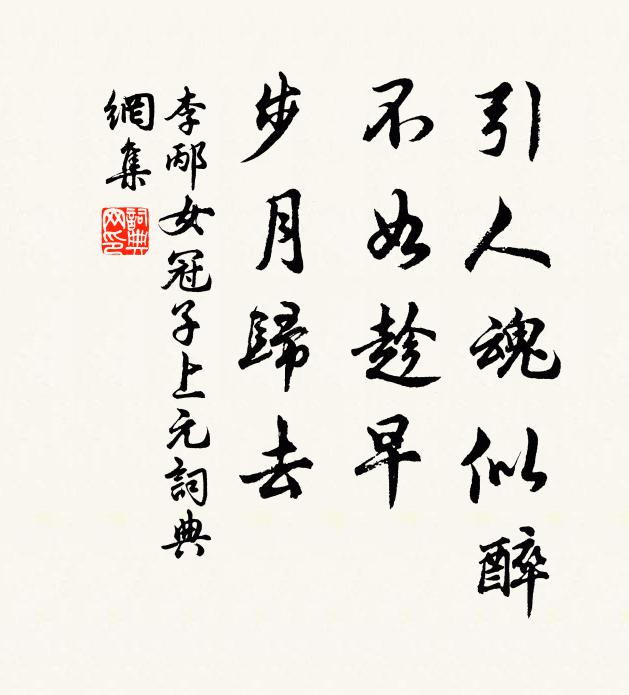 引人魂似醉
不如趁早
步月歸去
李邴女冠子上元詞典
網集
詞典網印